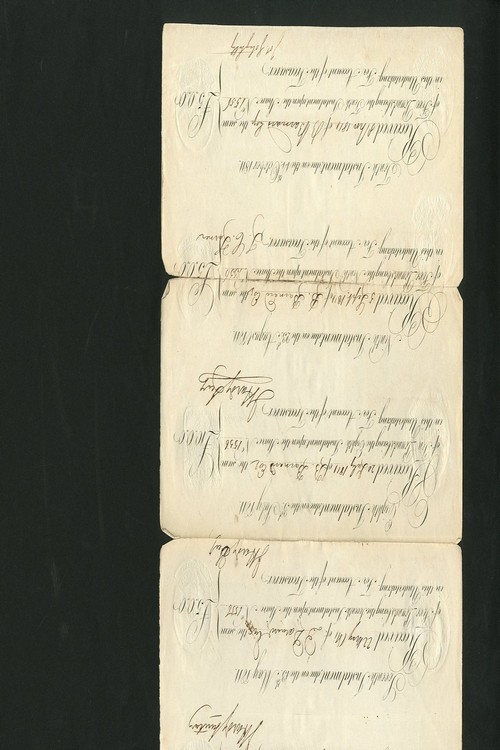 Seventh Instalment due on the 15th May 1811
Received May 1811 of the sum
of Five Pounds being the Seventh Instalment upon the Share No. 1558 £5.0.0
in this Undertaking. For Account of the Treasurer
Eighth Instalment due on the July 1811
Received July 1811 of Esq. the sum
of Five Pounds being the Eighth Instalment upon the Share No. 1558 £5.0.0
in this Undertaking. For Account of the Treasurer
Ninth Instalment due on the 22d August 1811
Received Sept. 1811 of Esq. the sum
of Five Pounds being the Ninth Instalment upon the Share No. 1558 £5.0.0
in this Undertaking. For Account of the Treasurer
Tenth Instalment due on the October 1811
Received 1811 of Esq. the sum
of Five Pounds being the Tenth Instalment upon the Share No. 1558 £5.0.0
in this Undertaking. For Account of the Treasurer